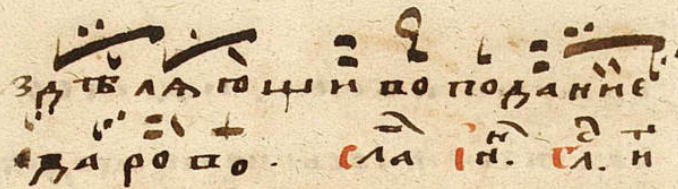 здѣляющи во подание
дарово. сла ін. сл. и